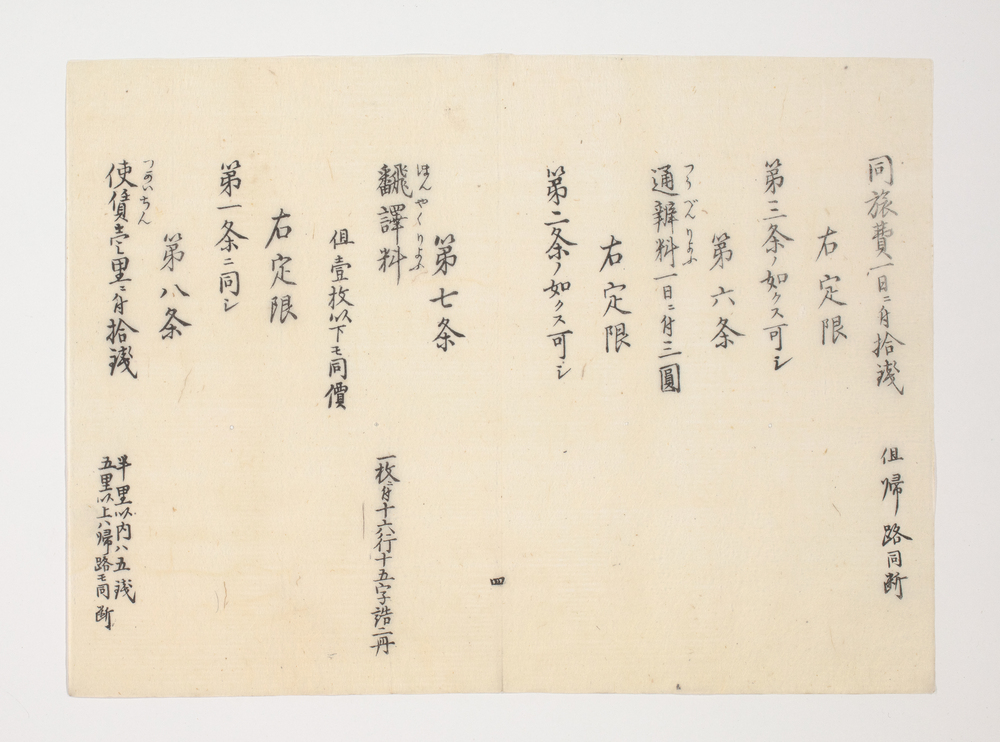 同旅費一日ニ付拾錢
但帰路同断
右定限
第三条ノ如クス可シ
第六条
つうべんりょう
通辨料一日ニ付三圓
右定限
第二条ノ如クス可シ
第七条
ほんやくりょう
飜譯料
一枚ニ付十六行十五字詰二円
但壹枚以下モ同價
右定限
第一条ニ同シ
第八条
つかいちん
使賃壱里ニ付拾錢
半里以内ハ五錢
五里以上ハ帰路モ同断
四